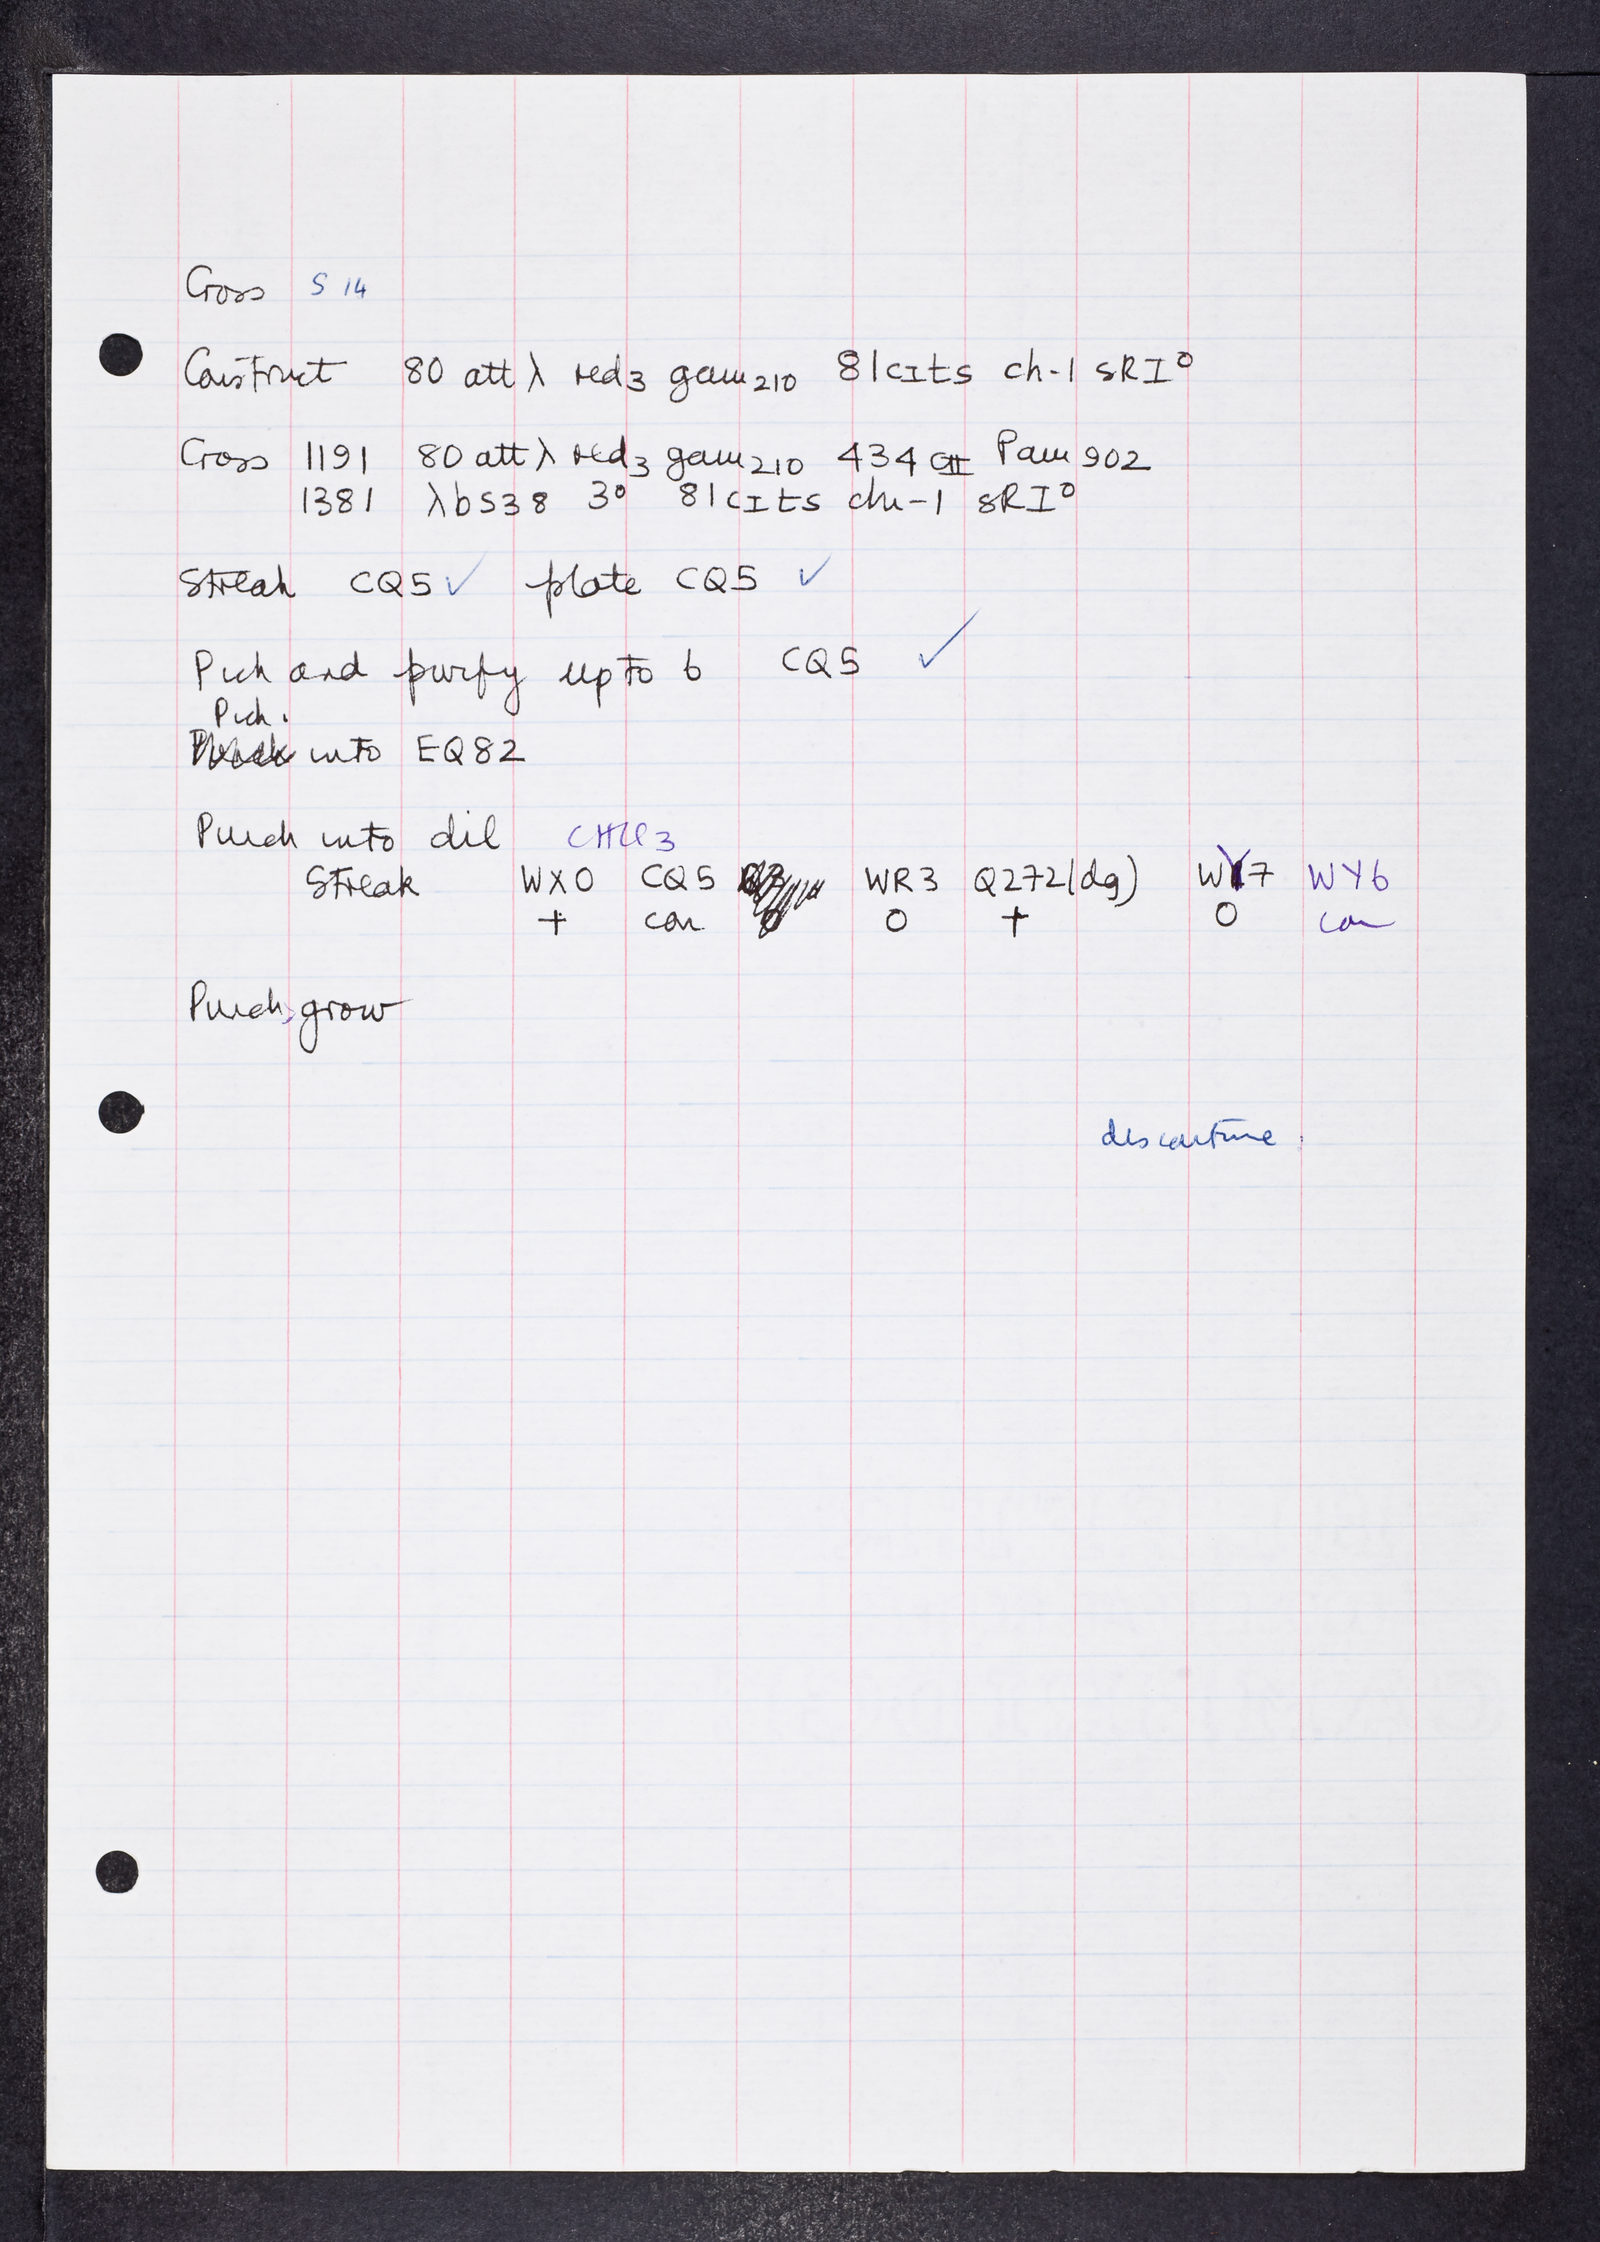 Cross S 14
Construct 80 att λ red3 gam210 81cIts ch-1 sRI°
Cross 1191 80 att λ red3 gam210 434 Pam902
1381 λb538 3° 81cIts chi-1 sRI°
Streak CQ5 ✓ plate CQ5 ✓
Pick and purify up to 6 CQ5 ✓
Pick.
into EQ82
Punch into dil CHCl3
Streak WX0 CQ5 WR3 Q272(dg) WY7 WY6
+ con 0 + 0 con
Punch, grow
discontinue